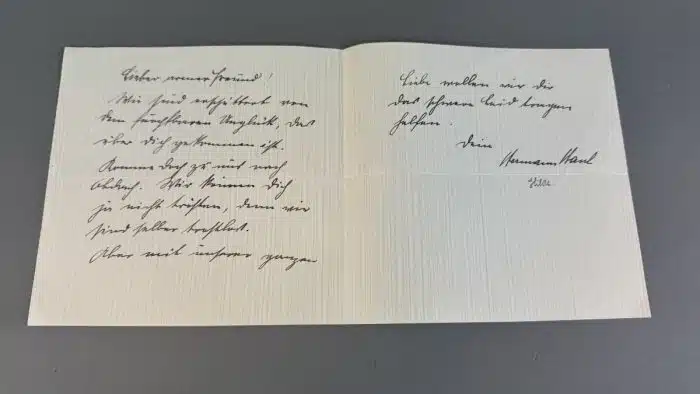 Lieber armer Freund!
Wir sind erschüttert von
dem furchtbaren Unglück, das
über dich gekommen ist.
Komme doch zu uns nach
Obdach. Wir können Dich
ja nicht trösten, denn wir
sind selber trostlos.
Aber mit unserer ganzen
Liebe wollen wir dir
das schwere Leid tragen
helfen.
Dein
Hermann